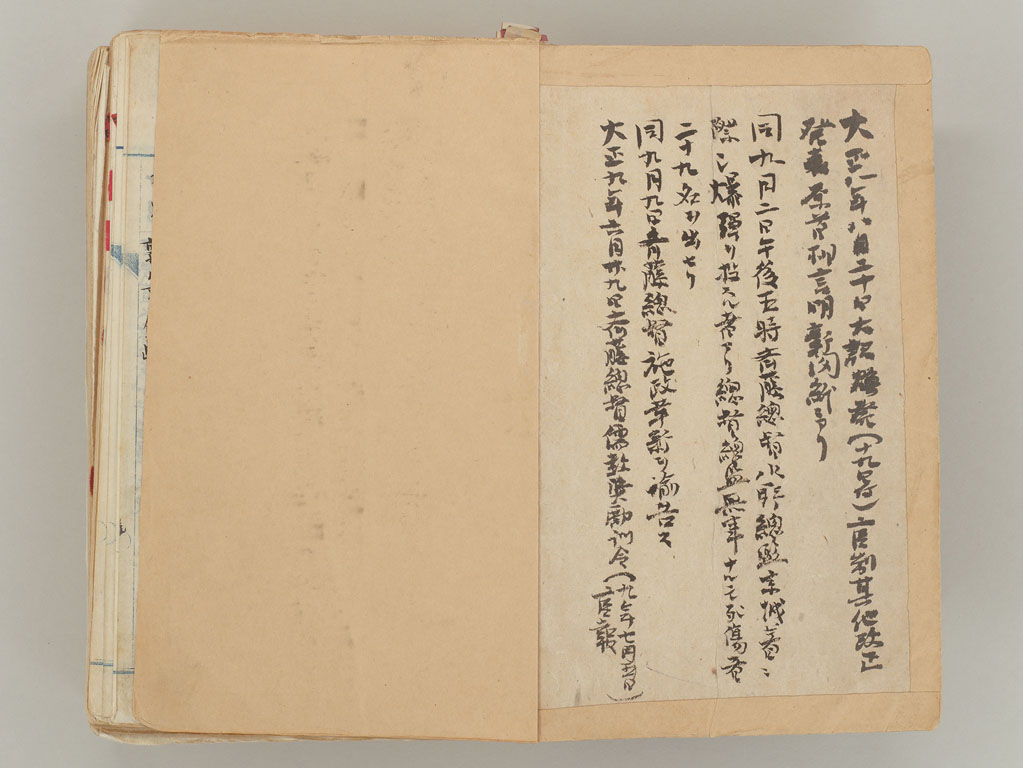 大正八年八月二十日大詔煥発(十九日付)官制其他改正
発表原首相言明新聞ニアリ
同九月二日午後五時斉藤総督水野総監京城ニ着ニ
際シ爆弾ヲ投スル者アリ總督總監無事ナルモ死傷者
二十九名ヲ出セリ
同九月九日斉藤總督施政革新ヲ諭告ス
大正九年六月廿九日斉藤總督儒教奨励訓令(九年七月
官報)